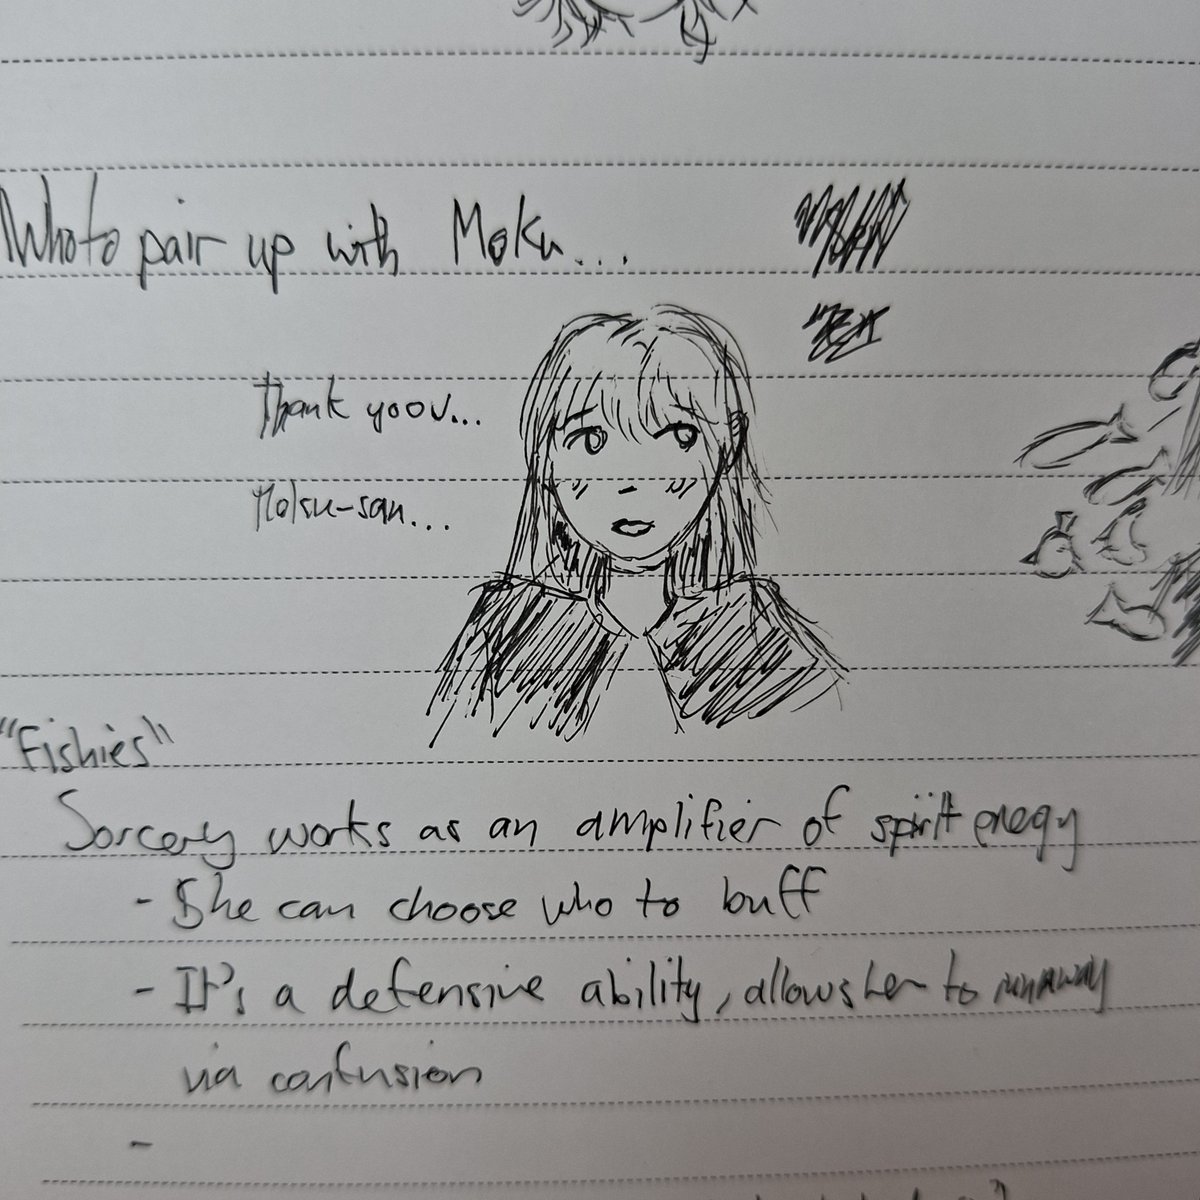 Who to pair up with Moku...
Thank yoou...
Moku-san...
"Fishies"
Sorcery works as an amplifier of spirit enegy
- She can choose who to buff
- It's a defensive ability, allows her to runaway
via confusion
-